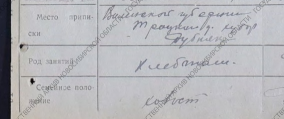 Место припи-
ски
Виленской губернии
Троцкого
Род занятий
Хлебопаш.
Семейное поло-
жение
холост